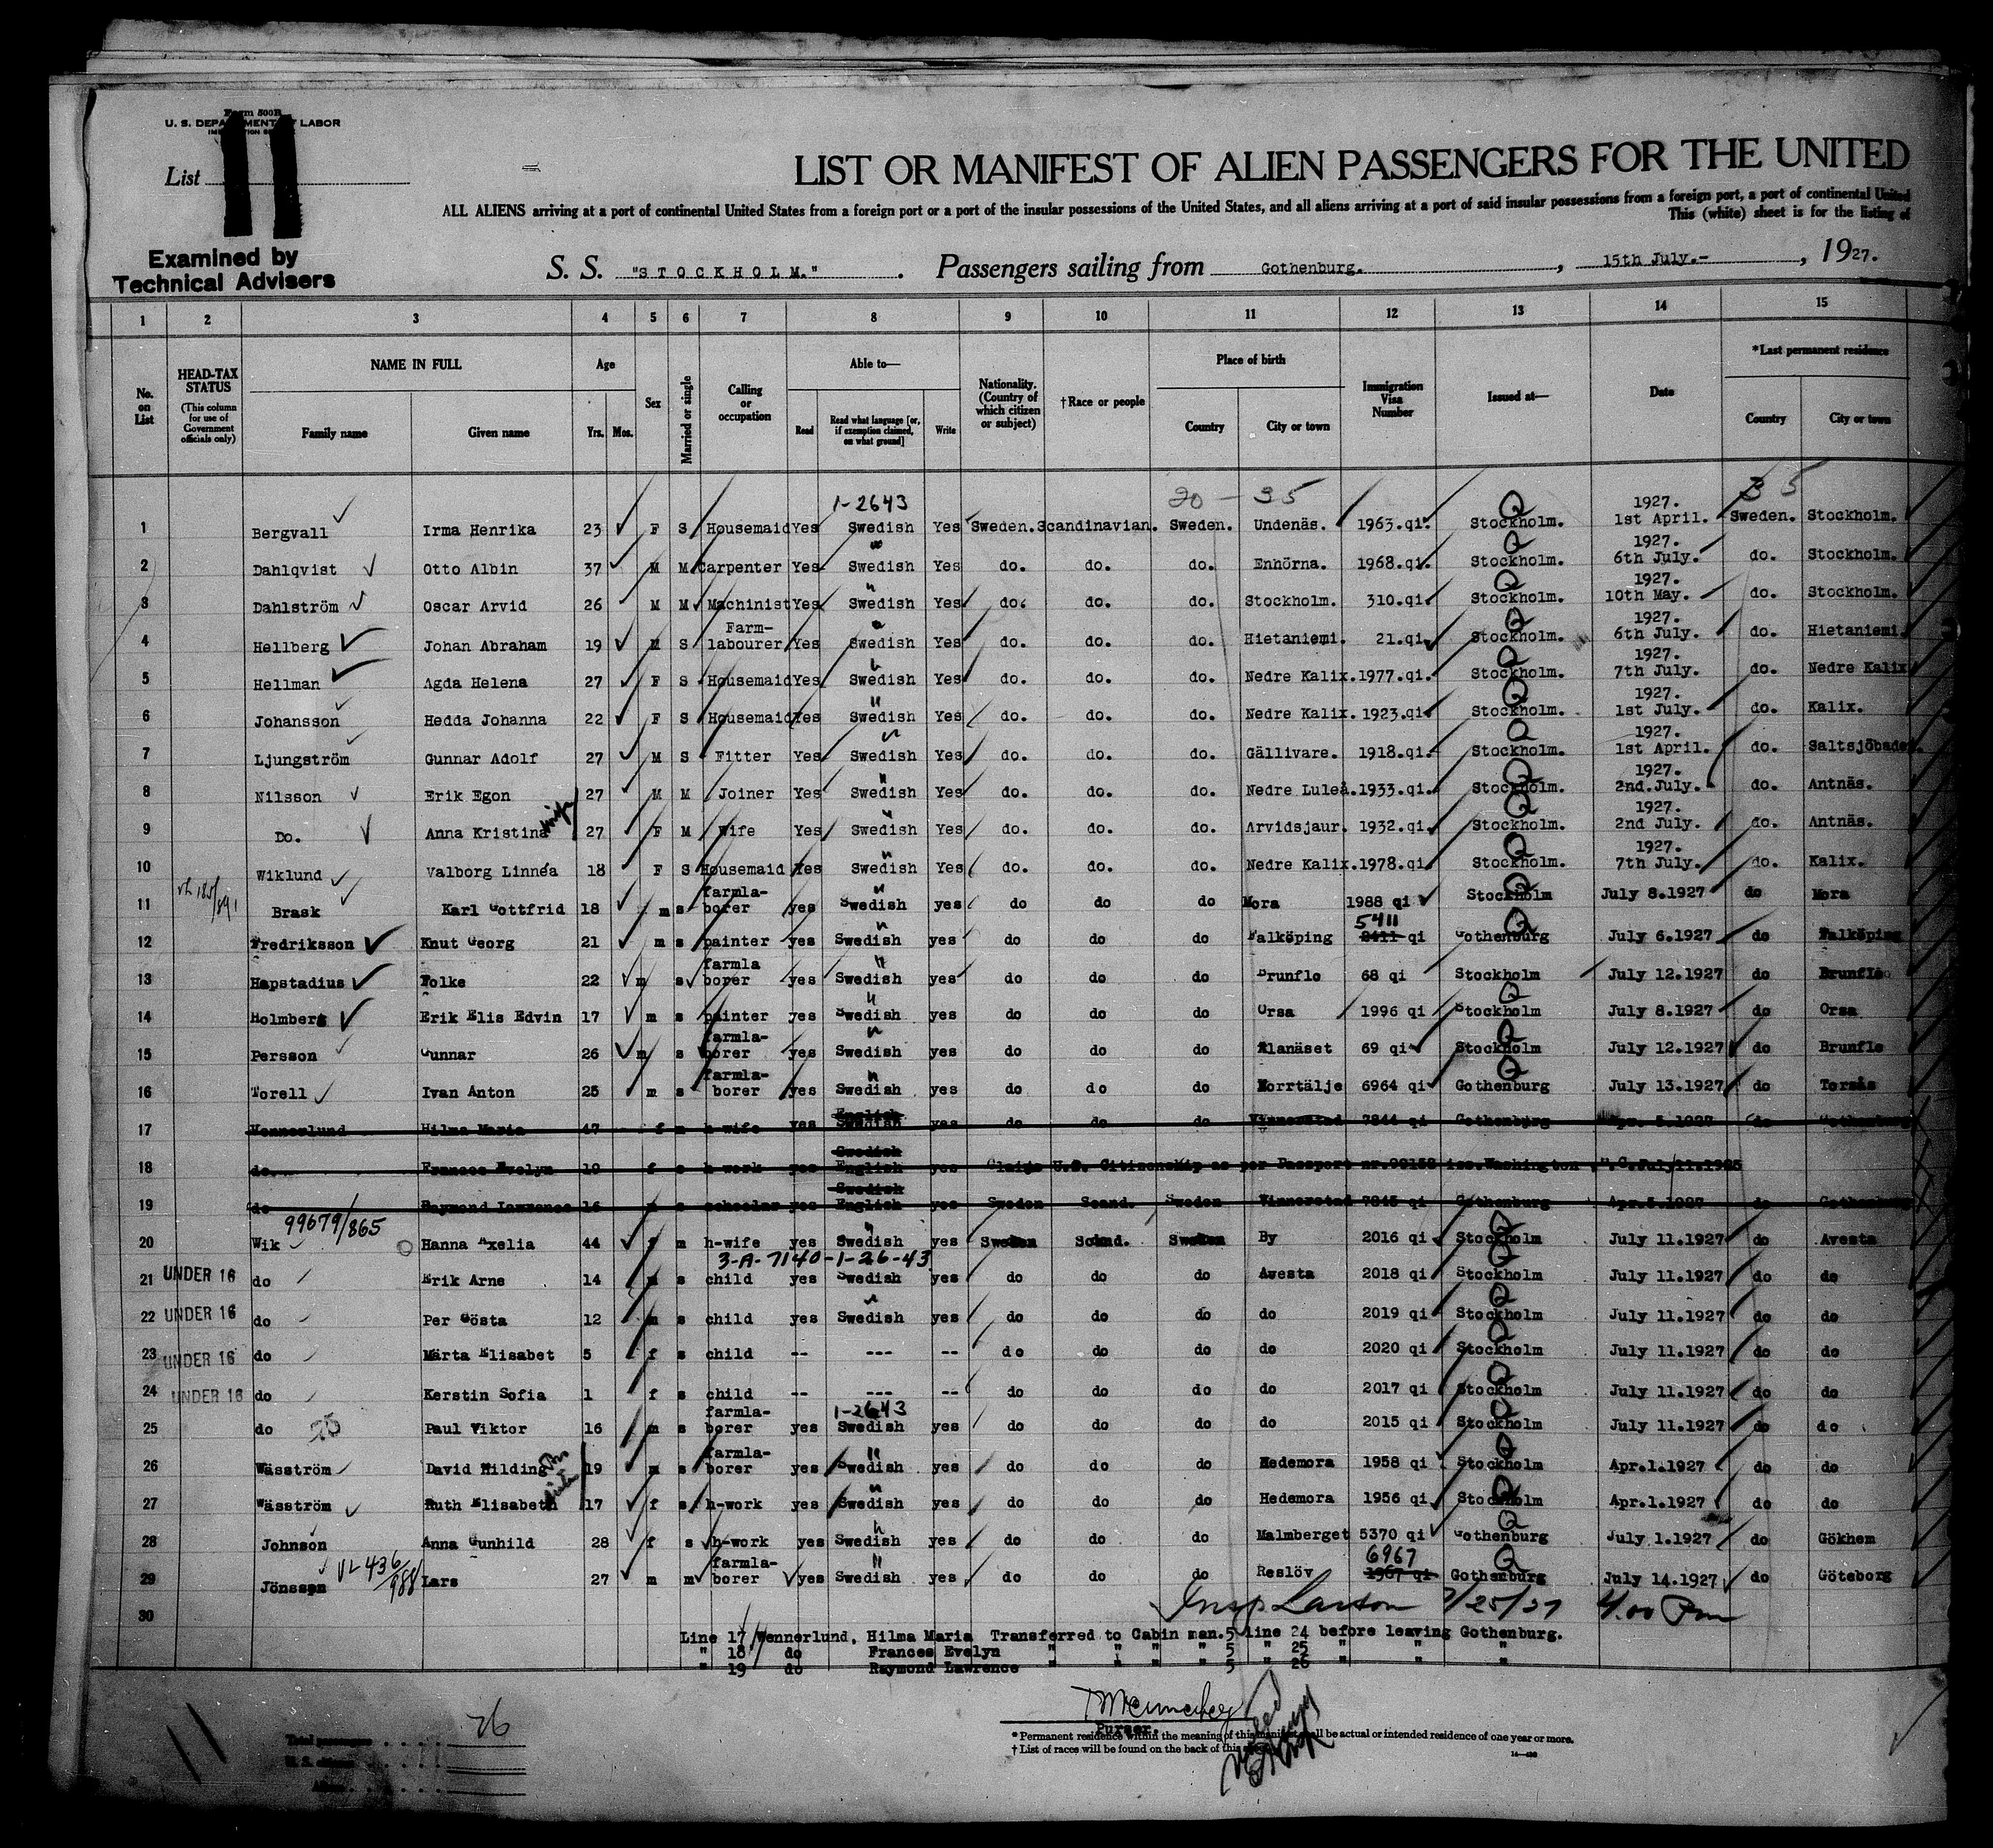 Form 500B
U. S. DEPARTMENT OF LABOR
List 11
LIST OR MANIFEST OF ALIEN PASSENGERS FOR THE UNITED
ALL ALIENS arriving at a port of continental United States from a foreign port or a port of the insular possessions of the United States, and all aliens arriving at a port of said insular possessions from a foreign port, a port of continental United
This (white) sheet is for the listing of
Examined by
Technical Advisers
S. S. "STOCKHOLM." Passengers sailing from Gothenburg. , 15th July.- , 1927.
1 2 3 4 5 6 7 8 9 10 11 12 13 14 15
No. on List
HEAD-TAX STATUS (This column for use of Government officials only)
NAME IN FULL Family name Given name
Age Yrs. Mos.
Sex
Married or single
Calling or occupation
Able to— Read Read what language [or, if exemption claimed, on what ground] Write
Nationality. (Country of which citizen or subject)
†Race or people
Place of birth Country City or town
Immigration Visa Number
Issued at—
Date
*Last permanent residence Country City or town
1-2643 20 - 35 35
1 Bergvall Irma Henrika 23 F S Housemaid Yes Swedish Yes Sweden. Scandinavian. Sweden. Undenäs. 1963.qi. Stockholm. 1927. 1st April. Sweden. Stockholm.
2 Dahlqvist Otto Albin 37 M M Carpenter Yes Swedish Yes do. do. do. Enhörna. 1968.qi. Stockholm. 1927. 6th July. do. Stockholm.
3 Dahlström Oscar Arvid 26 M M Machinist Yes Swedish Yes do. do. do. Stockholm. 310.qi. Stockholm. 1927. 10th May. do. Stockholm.
4 Hellberg Johan Abraham 19 M S Farm-labourer Yes Swedish Yes do. do. do. Hietaniemi. 21.qi. Stockholm. 1927. 6th July. do. Hietaniemi.
5 Hellman Agda Helena 27 F S Housemaid Yes Swedish Yes do. do. do. Nedre Kalix. 1977.qi. Stockholm. 1927. 7th July. do. Nedre Kalix
6 Johansson Hedda Johanna 22 F S Housemaid Yes Swedish Yes do. do. do. Nedre Kalix. 1923.qi. Stockholm. 1927. 1st July. do. Kalix.
7 Ljungström Gunnar Adolf 27 M S Fitter Yes Swedish Yes do. do. do. Gällivare. 1918.qi. Stockholm. 1927. 1st April. do. Saltsjöbaden.
8 Nilsson Erik Egon 27 M M Joiner Yes Swedish Yes do. do. do. Nedre Luleå. 1933.qi. Stockholm. 1927. 2nd.July. do. Antnäs.
9 Do. Anna Kristina wife 27 F M Wife Yes Swedish Yes do. do. do. Arvidsjaur. 1932.qi. Stockholm. 1927. 2nd July. do. Antnäs.
10 Wiklund Valborg Linnéa 18 F S Housemaid Yes Swedish Yes do. do. do. Nedre Kalix. 1978.qi. Stockholm. 1927. 7th July. do. Kalix.
11 Brask Karl Gottfrid 18 m s farmla-borer yes Swedish yes do do do Mora 1988 qi Stockholm July 8.1927 do Mora
12 Fredriksson Knut Georg 21 m s painter yes Swedish yes do do do Falköping 5411 qi Gothenburg July 6.1927 do Falköping
13 Hapstadius Folke 22 m s farmla borer yes Swedish yes do do do Brunflo 68 qi Stockholm July 12.1927 do Brunflo
14 Holmberg Erik Elis Edvin 17 m s painter yes Swedish yes do do do Orsa 1996 qi Stockholm July 8.1927 do Orsa
15 Persson Gunnar 26 m s farmla-borer yes Swedish yes do do do Alanäset 69 qi Stockholm July 12.1927 do Brunflo
16 Torell Ivan Anton 25 m s farmla-borer yes Swedish yes do do do Norrtälje 6964 qi Gothenburg July 13.1927 do Torsås
17 Wennerlund Hilma Maria 47 f m h-wife yes English Swedish yes do do do Vinnerstad 7844 qi Gothenburg Apr. 5.1927 do Gothenburg
18 do. Frances Evelyn 19 f s h-work yes Swedish English yes Claims U.S. Citizenship as per Passport iss.Washington July 11.1925
19 do Raymond Lawrence 16 m s scholar yes Swedish English yes Sweden Scand. Sweden Vinnerstad 7845 qi Gothenburg Apr.5.1927 do Gothenburg
99679/865
20 Wik Hanna Axelia 44 f m h-wife yes Swedish yes Sweden Scand. Sweden By 2016 qi Stockholm July 11.1927 do Avesta
3-A-7140-1-26-43
21 UNDER 16 do Erik Arne 14 m s child yes Swedish yes do do do Avesta 2018 qi Stockholm July 11.1927 do do
22 UNDER 16 do Per Gösta 12 m s child yes Swedish yes do do do do 2019 qi Stockholm July 11.1927 do do
23 UNDER 16 do Märta Elisabet 5 f s child -- --- -- do do do do 2020 qi Stockholm July 11.1927 do do
24 UNDER 16 do Kerstin Sofia 1 f s child -- --- -- do do do do 2017 qi Stockholm July 11.1927 do do
1-2643
25 do Paul Viktor 16 m s farmla-borer yes Swedish yes do do do do 2015 qi Stockholm July 11.1927 do do
26 Wäsström David Hilding 19 m s farmla-borer yes Swedish yes do do do Hedemora 1958 qi Stockholm Apr.1.1927 do do
27 Wäsström Ruth Elisabeth 17 f s h-work yes Swedish yes do do do Hedemora 1956 qi Stockholm Apr.1.1927 do do
28 Johnson Anna Gunhild 28 f s h-work yes Swedish yes do do do Malmberget 5370 qi Gothenburg July 1.1927 do Gökhem
29 Jönsson VL-436/988 Lars 27 m m farmla-borer yes Swedish yes do do do Reslöv 6967 1967 qi Gothenburg July 14.1927 do Göteborg
30 Insp Larson 7/25/27 4.00 Pm
Line 17 Wennerlund, Hilma Maria Transferred to Cabin man.5 line 24 before leaving Gothenburg.
" 18 do Frances Evelyn " " " " 5 " 25 " " "
" 19 do Raymond Lawrence " " " " 5 " 26 " " "
Total passengers 26
U. S. citizens
Aliens
Purser.
* Permanent residence within the meaning of this manifest shall be actual or intended residence of one year or more.
† List of races will be found on the back of this